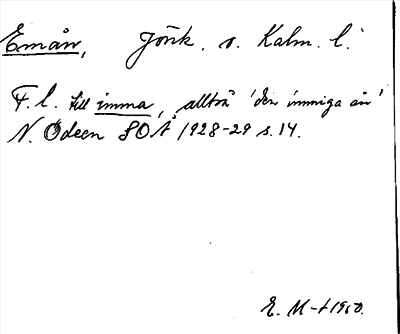 Emån, Jönk. o. Kalm. l.
F. l. till imma, alltså 'den immiga ån'
N. Ödeen SOÅ 1928-29 s. 14.
E. M-t 1950.